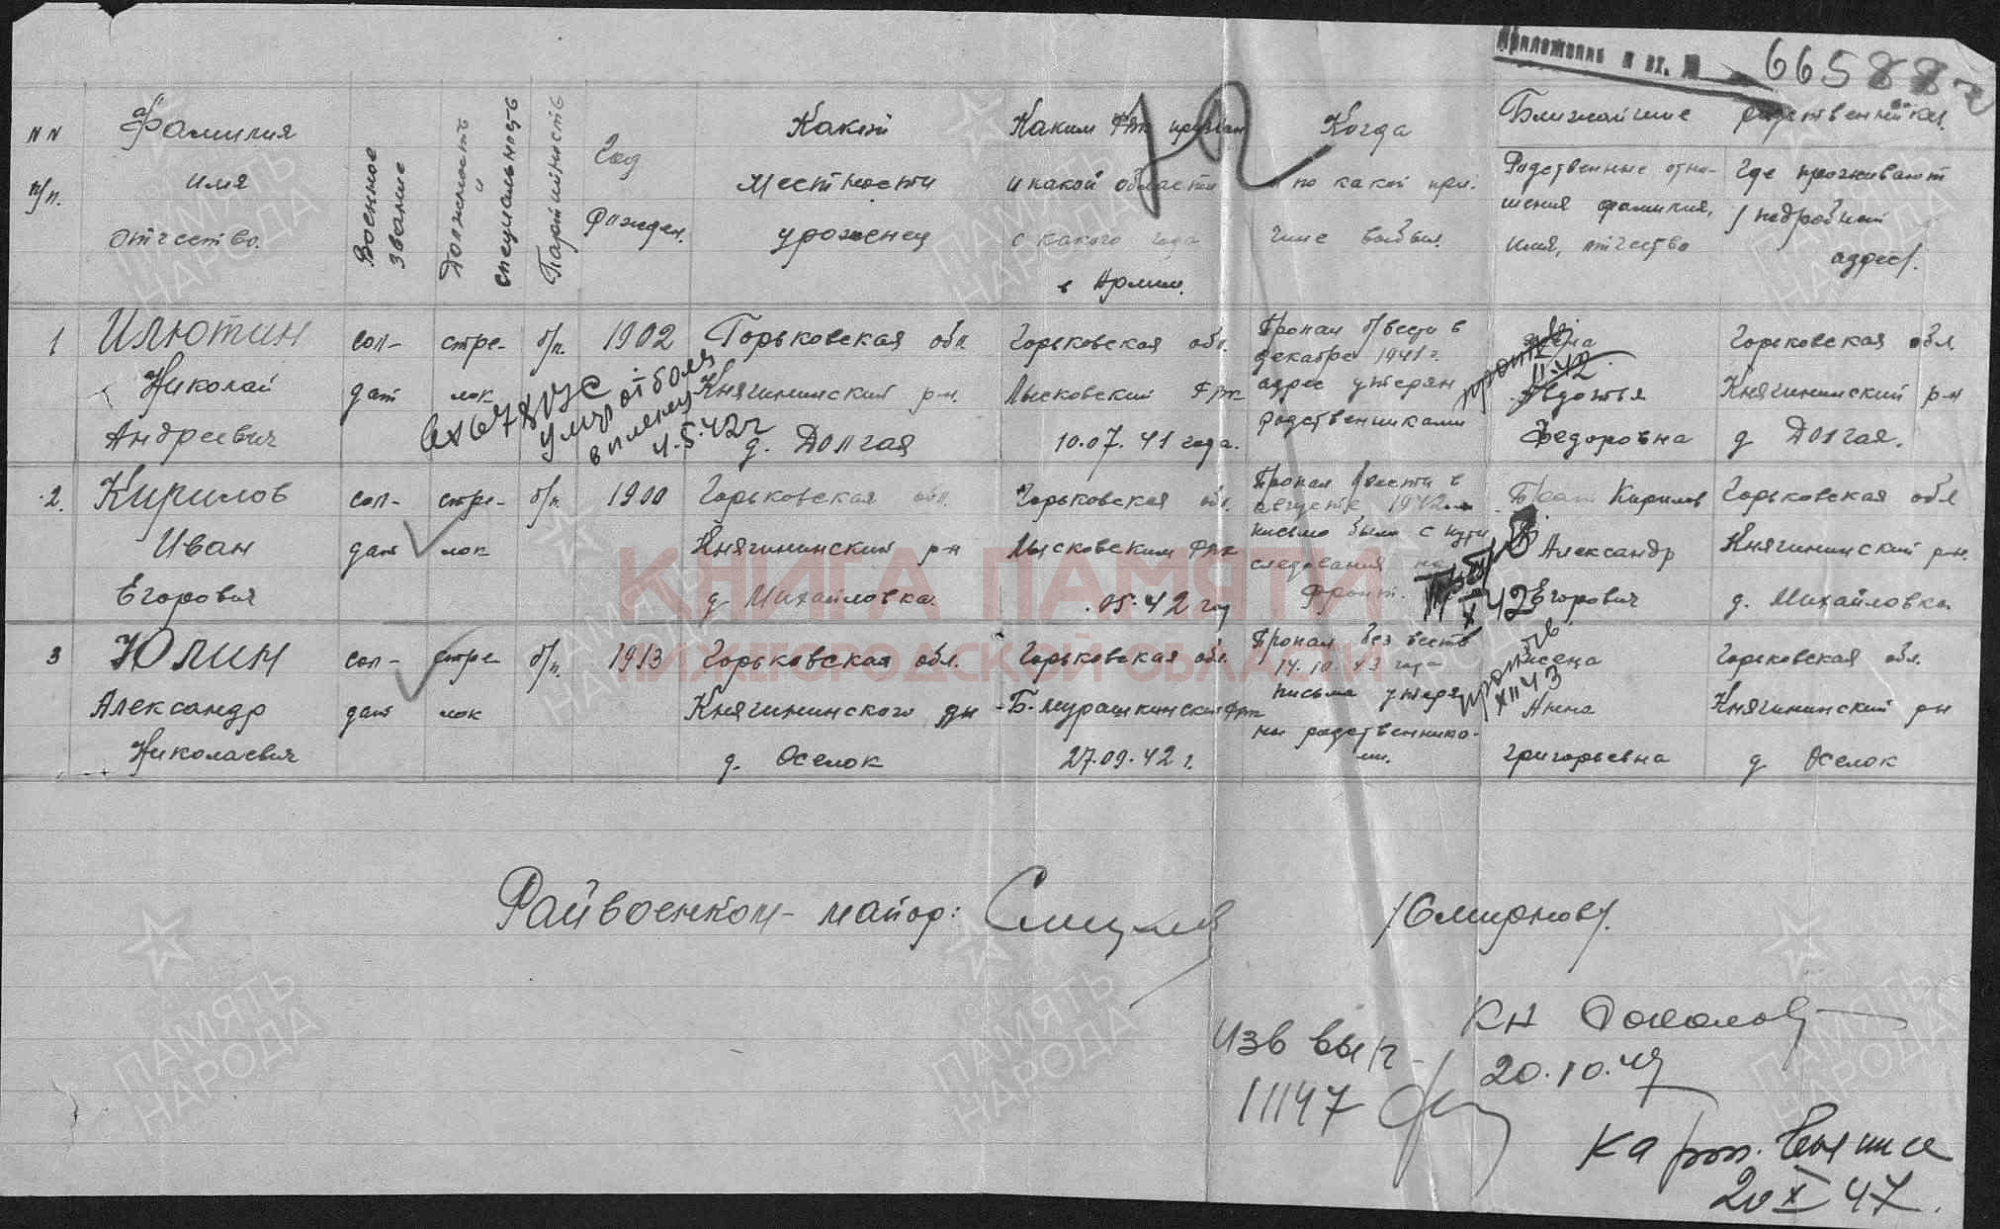 Приложение к вх. №
66588
№№ п/п.
Фамилия имя отчество.
Военное звание
Должность и специальность
Партийность
Год рожден.
Какой местности уроженец
Каким РВК призван и какой области с какого года в Армии.
Когда и по какой при-
чине выбыл.
Ближайшие родственники.
Родственные отно-
шения фамилия,
имя, отчество
Где проживают
/подробный
адрес/.
1
Илютин
Николай
Андреевич
сол-
дат
стре-
лок
б/п.
1902
Горьковская обл
Княгининский р-н.
д. Долгая
Горьковская обл.
Лысковский РВК
10.07.41 года.
Пропал б/вести в
декабре 1941 г.
адрес утерян
родственниками
жена
Авдотья
Федоровна
Горьковская обл.
Княгининский р-н
д Долгая.
умер от боля
в плену
4.5.42 г
42.
2.
Кирилов
Иван
Егорович
сол-
дат
стре-
лок
б/п.
1900
Горьковская обл.
Княгининский р-н
д Михайловка.
Горьковская обл.
Лысковским РВК
.05.42 год
Пропал б/вести в
августе 1942
письмо было с пути
следования на
фронт.
Брат Кирилов
Александр
Егорович
Горьковская обл
Княгининский р-н.
д. Михайловка
42
3
Юлин
Александр
Николаевич
сол-
дат
стре-
лок
б/п.
1913
Горьковская обл.
Княгининского рн
д. Оселок
Горьковская обл.
Б-Мурашкинский РВК
27.09.42 г.
Пропал без вести
14.10.43 года
письма утеря-
ны родственника-
ми.
жена
Анна
Григорьевна
Горьковская обл.
Княгининский рн
д Оселок
XII 43
Райвоенком - майор:
/Смирнов/.
Изв вып
11147
КН Соколов
20.10.47
20 X 47.
КНИГА ПАМЯТИ
НИЖЕГОРОДСКОЙ ОБЛАСТИ
ПАМЯТЬ
НАРОДА
ПАМЯТЬ
НАРОДА
ПАМЯТЬ
НАРОДА
ПАМЯТЬ
НАРОДА
ПАМЯТЬ
НАРОДА
ПАМЯТЬ
НАРОДА
ПАМЯТЬ
НАРОДА
ПАМЯТЬ
НАРОДА